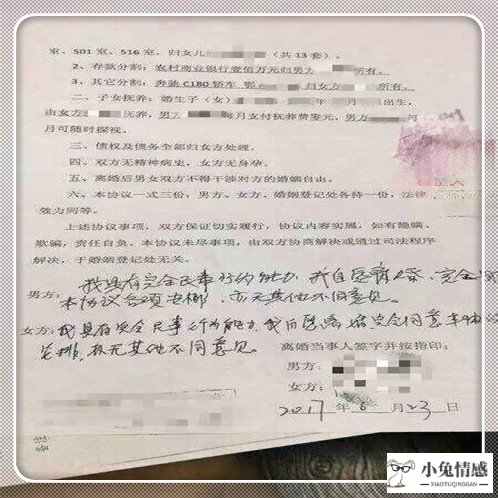 室、501 室、516 室，归女儿 （共 13 套）。
2、存款分割：农村商业银行壹佰万元归男方 所有。
3、其它分割：奔驰 C180 轿车 鄂 归女方 所有。
二、子女抚养：婚生子（女） 年 月 出生，
由女方 抚养，男方 每月支付抚养费壹元，男方
月可随时探视。
三、债权及债务全部归女方处理。
四、双方无精神病史，女方无身孕。
五、离婚后男女双方不得干涉对方的婚姻自由。
六、本协议一式三份，男方、女方、婚姻登记处各持一份，法律
效力同等。
上述协议事项，双方保证切实履行，协议内容实属，如有隐瞒、
欺骗，责任自负。本协议未尽事项，由双方协商解决或通过司法程序
解决，于婚姻登记处无关。
男方：我具有完全民事行为能力，我自愿离婚，完全
本协议各项安排，亦无其他不同意见。
女方：我具有完全民事行为能力，我自愿离婚完全同意本协议
安排，亦无其他不同意见。
离婚当事人签字并按指印：
男方：
女方：
2017 年 6 月 23 日
小兔情感
XIAOTUQINGGAN